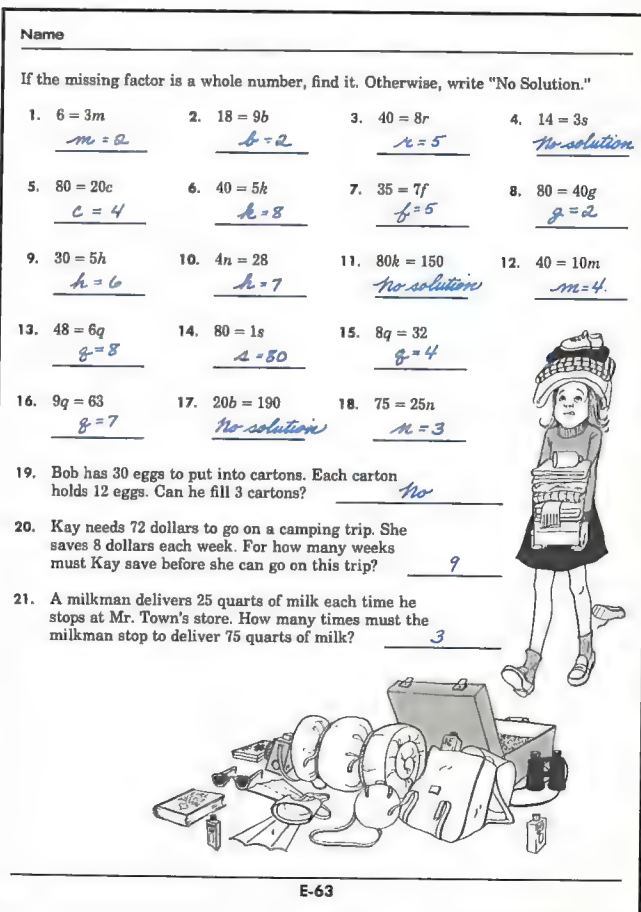 Name
If the missing factor is a whole number, find it. Otherwise, write "No Solution."
1. 6 = 3m 2. 18 = 9b 3. 40 = 8r 4. 14 = 3s
m = 2 b = 2 r = 5 No solution
5. 80 = 20c 6. 40 = 5k 7. 35 = 7f 8. 80 = 40g
c = 4 k = 8 f = 5 g = 2
9. 30 = 5h 10. 4n = 28 11. 80k = 150 12. 40 = 10m
h = 6 n = 7 no solution m = 4.
13. 48 = 6q 14. 80 = 1s 15. 8q = 32
q = 8 s = 80 q = 4
16. 9q = 63 17. 20b = 190 18. 75 = 25n
q = 7 No solution n = 3
19. Bob has 30 eggs to put into cartons. Each carton
holds 12 eggs. Can he fill 3 cartons? No
20. Kay needs 72 dollars to go on a camping trip. She
saves 8 dollars each week. For how many weeks
must Kay save before she can go on this trip? 9
21. A milkman delivers 25 quarts of milk each time he
stops at Mr. Town's store. How many times must the
milkman stop to deliver 75 quarts of milk? 3
E-63